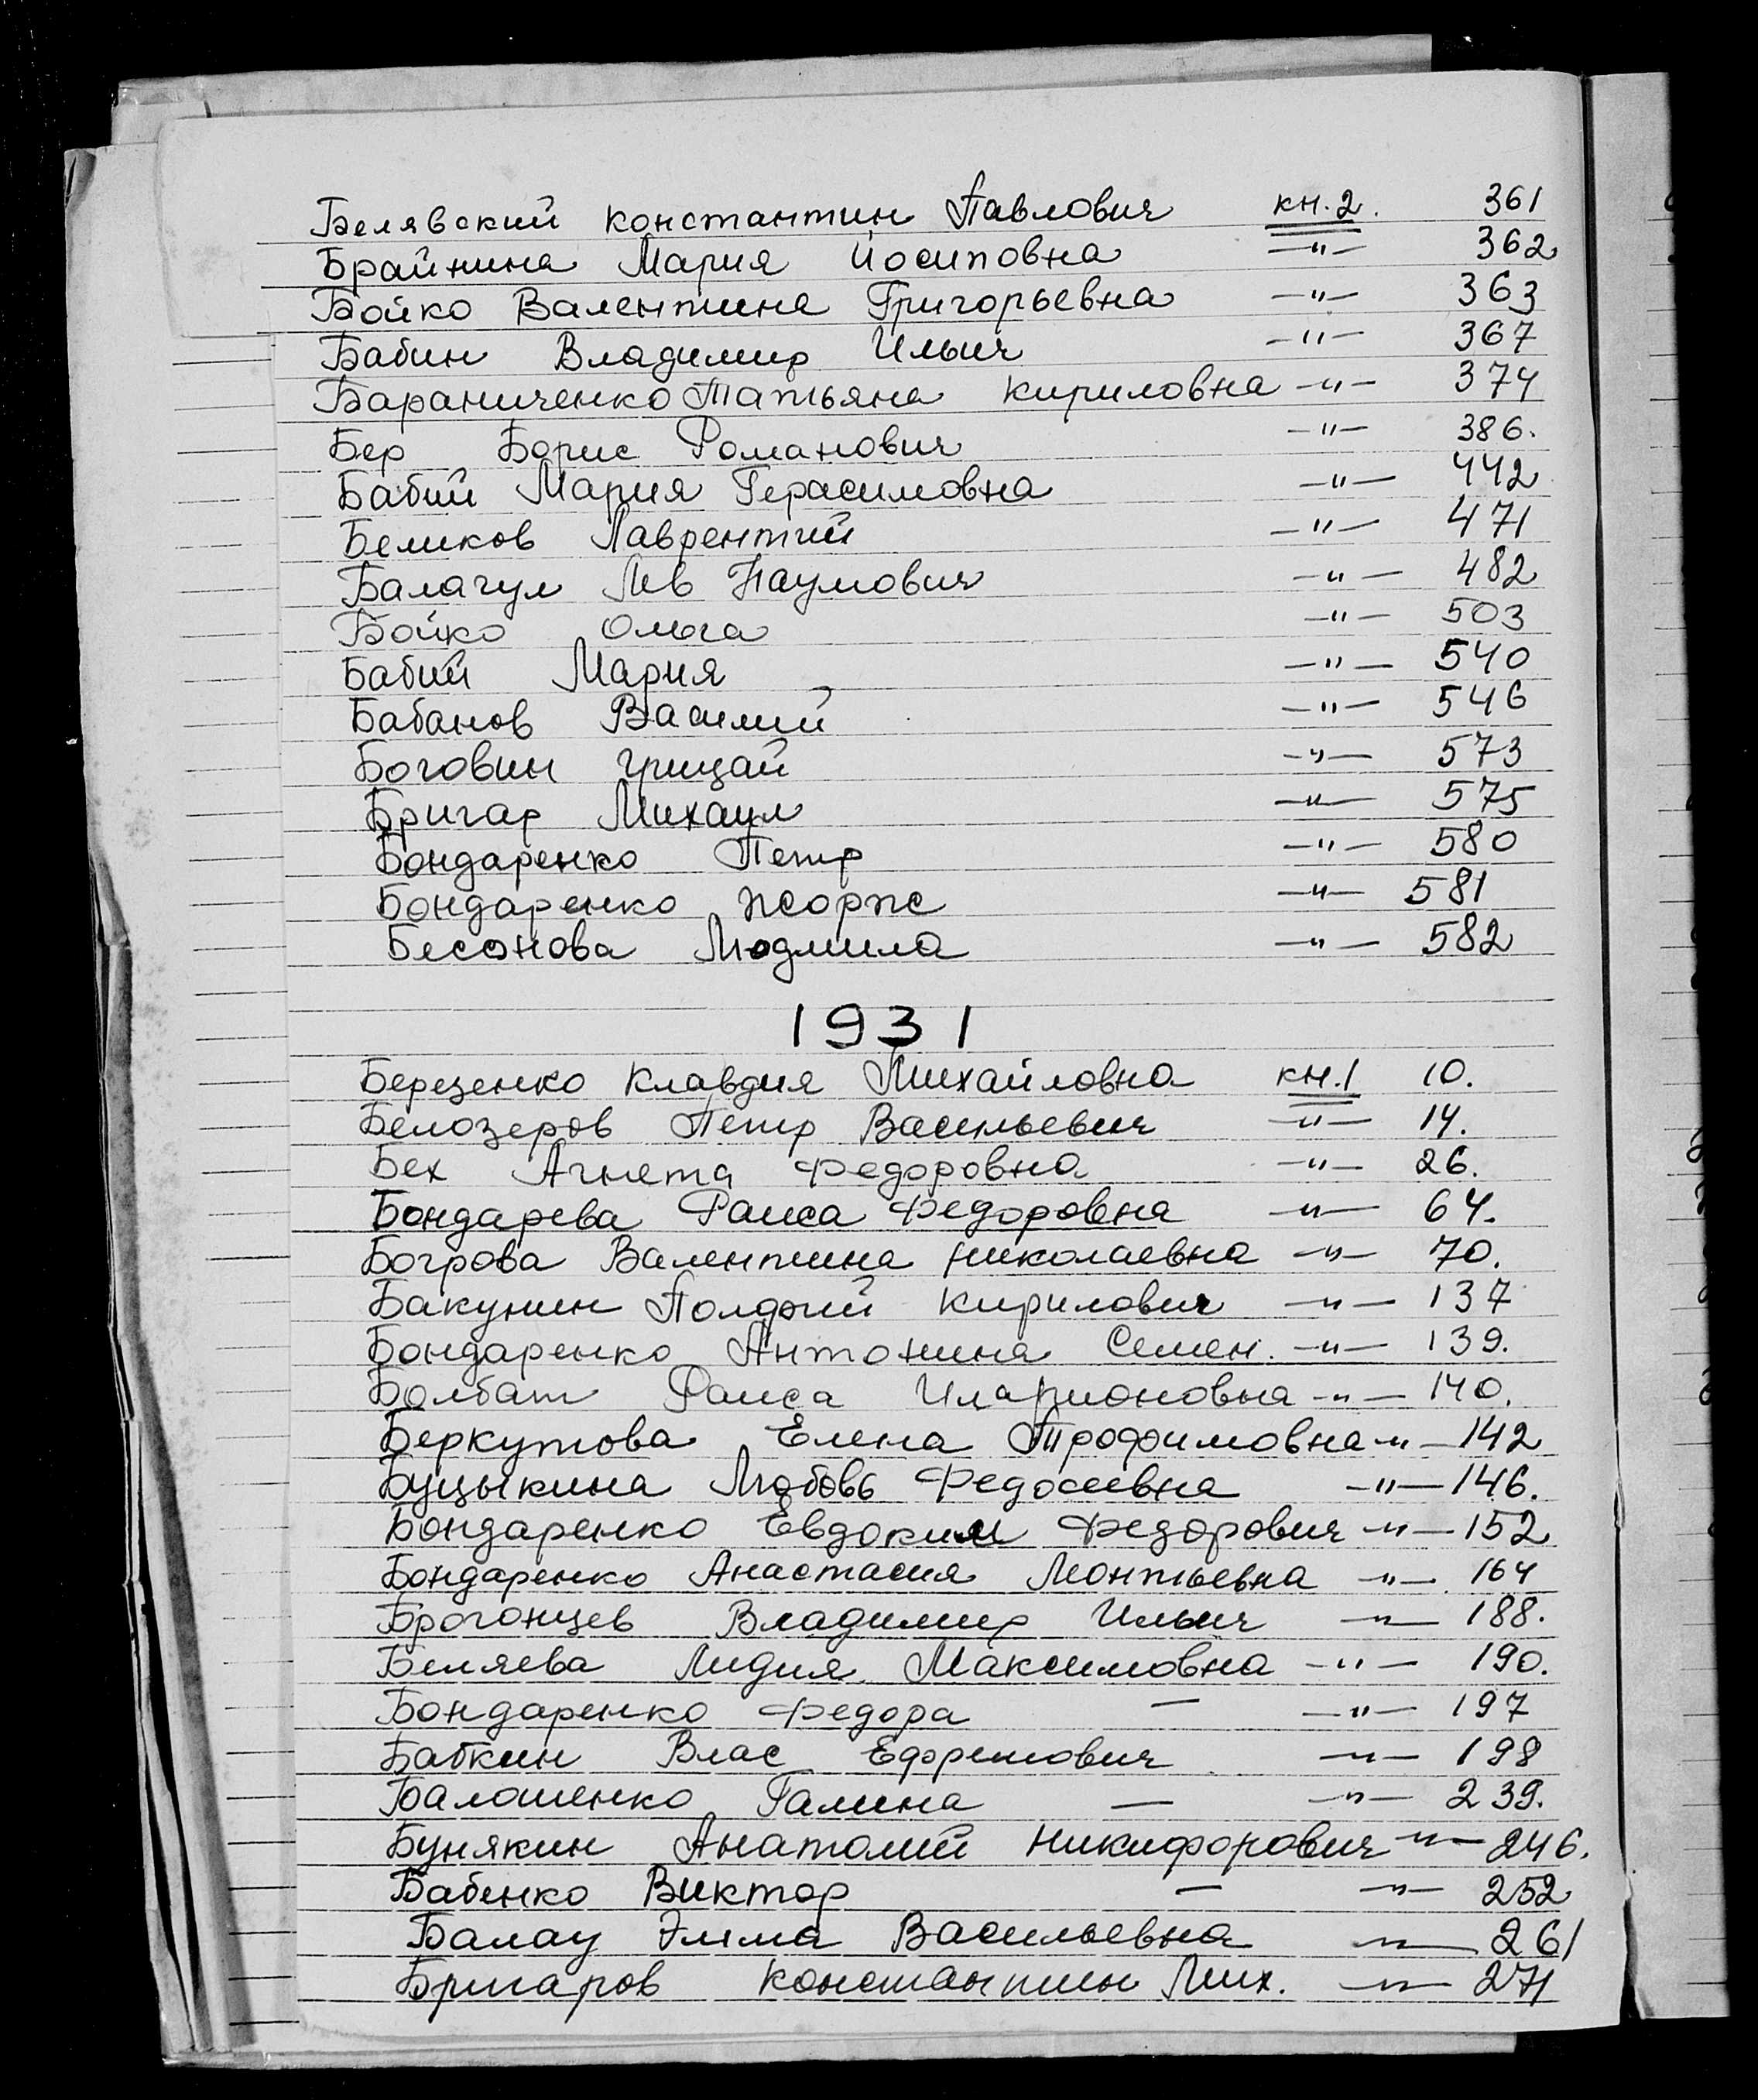 Белявский Константин Павлович кн. 2. 361
Брайнина Мария Иосиповна —"— 362
Бойко Валентина Григорьевна —"— 363
Бабин Владимир Ильич —"— 367
Бараниченко Татьяна Кириловна —"— 374
Бер Борис Романович —"— 386.
Бабий Мария Герасимовна —"— 442
Беликов Лаврентий —"— 471
Балагул Лев Наумович —"— 482
Бойко Ольга —"— 503
Бабий Мария —"— 540
Бабанов Василий —"— 546
Боговин Грицай —"— 573
Бригар Михаил —"— 575
Бондаренко Петр —"— 580
Бондаренко Жорж —"— 581
Бесонова Людмила —"— 582
1931
Березенко Клавдия Михайловна кн. 1 10.
Белозеров Петр Васильевич —"— 14.
Бех Агнета Федоровна —"— 26.
Бондарева Раиса Федоровна —"— 64.
Богрова Валентина Николаевна —"— 70.
Бакунин Кирилович —"— 137
Бондаренко Антонина Семен. —"— 139.
Болбат Раиса Иларионовна —"— 140.
Беркутова Елена Трофимовна —"— 142
Буцыкина Любовь Федосеевна —"— 146.
Бондаренко Евдоким Федорович —"— 152
Бондаренко Анастасия Леонтьевна —"— 164
Брогонцев Владимир Ильич —"— 188.
Беляева Лидия Максимовна —"— 190.
Бондаренко Федора — —"— 197
Бабкин Влас Ефремович —"— 198
Балошенко Галина — —"— 239.
Бунякин Анатолий Никифорович —"— 246.
Бабенко Виктор — —"— 252
Балау Эмма Васильевна —"— 261
Бригаров Константин Мих. —"— 271